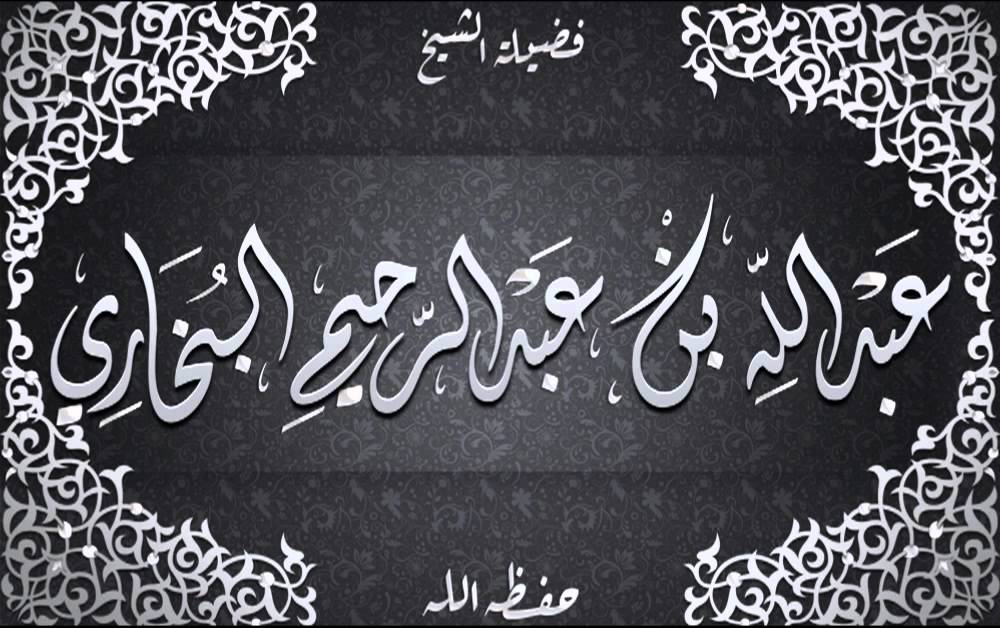 فضيلة الشيخ
عَبدالله بن عبدالرّحيمِ البُخَارِي
حفظه الله